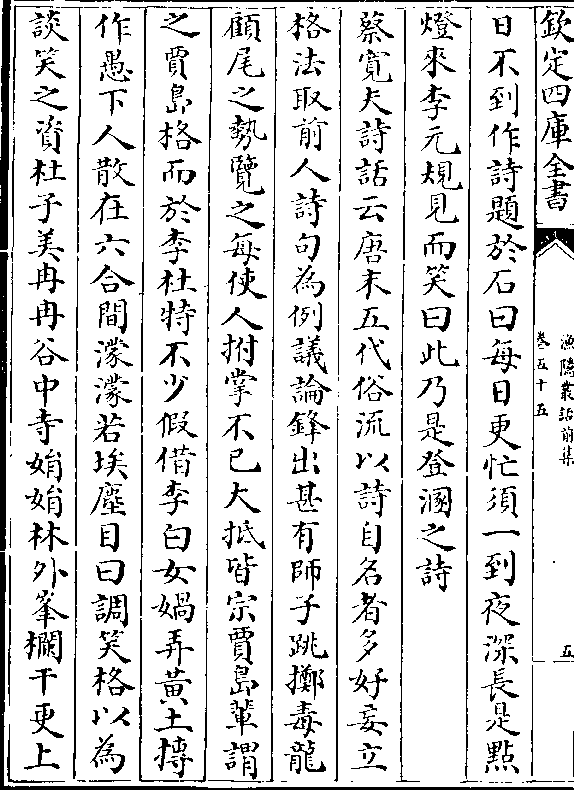 欽定四庫全書
漁隱叢話前集
卷五十五
五
日不到作詩題於石曰每日更忙須一到夜深長是點
燈來李元規見而笑曰此乃是登溷之詩
蔡寬夫詩話云唐末五代俗流以詩自名者多好妄立
格法取前人詩句為例議論鋒出甚有師子跳擲毒龍
顧尾之勢覽之每使人拊掌不已大抵皆宗賈島輩謂
之賈島格而於李杜特不少假借李白女媧弄黃土摶
作愚下人散在六合間濛濛若埃塵目曰調笑格以為
談笑之資杜子美冉冉谷中寺娟娟林外峯欄干更上